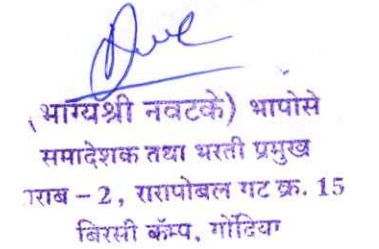 (भाग्यश्री नवटके) भापोसे
समादेशक तथा भरती प्रमुख
ाराब – 2, रारापोबल गट क्र. 15
बिरसी कॅम्प, गोंदिया